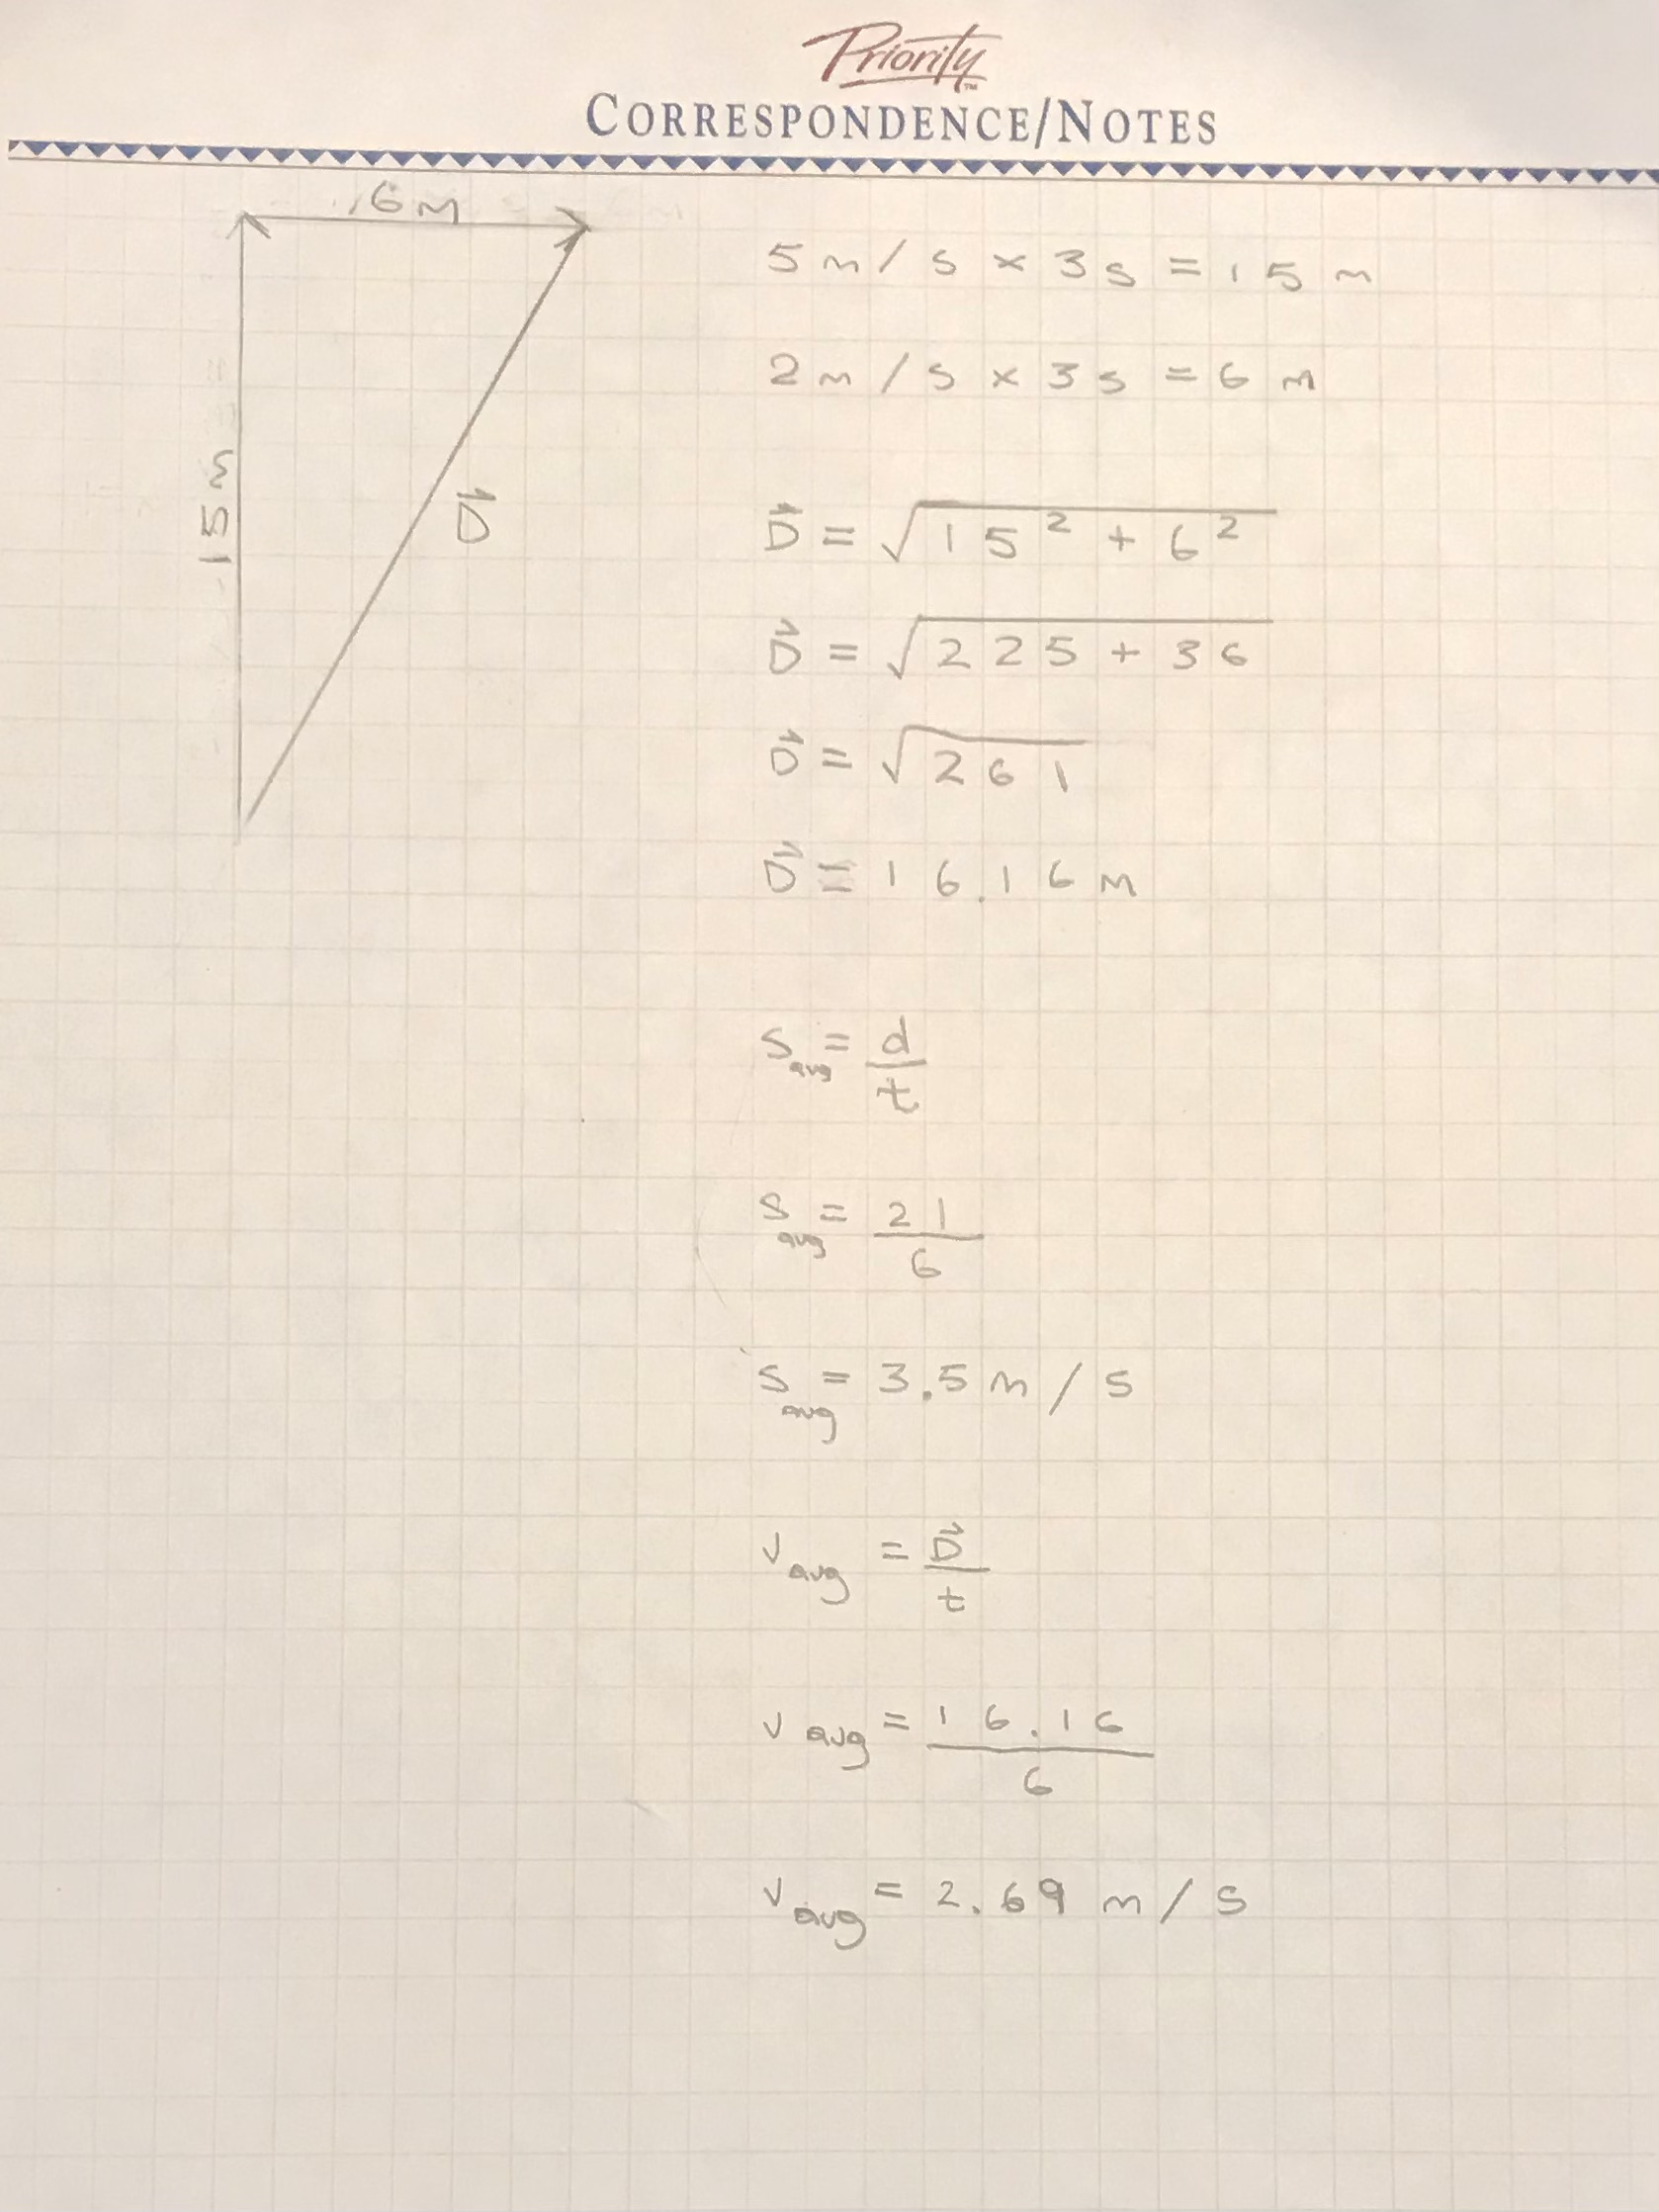 Priority™
CORRESPONDENCE/NOTES
6m
15m
D⃗
5m/s × 3s = 15m
2m/s × 3s = 6m
D⃗ = √15² + 6²
D⃗ = √225 + 36
D⃗ = √261
D⃗ = 16.16m
s avg = d/t
s avg = 21/6
s avg = 3.5m/s
v avg = D⃗/t
v avg = 16.16/6
v avg = 2.69 m/s